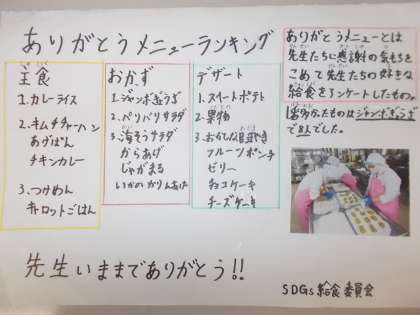 ありがとうメニューランキング
主食
1.カレーライス
2.キムチチャーハン
あげぱん
チキンカレー
3.つけめん
キャロットごはん
おかず
1.ジャンボぎょうざ
2.パリパリサラダ
3.海そうサラダ
からあげ
じゃがまる
いかのかりんあげ
デザート
1.スイートポテト
2.果物
3.おかしな目玉やき
フルーツポンチ
ゼリー
チョコケーキ
チーズケーキ
ありがとうメニューとは
先生たちに感謝の気もちを
こめて先生たちの好きな
給食をアンケートしたもの。
1番多かったものはジャンボぎょうざ
で8人でした。
先生いままでありがとう!!
SDGs給食委員会